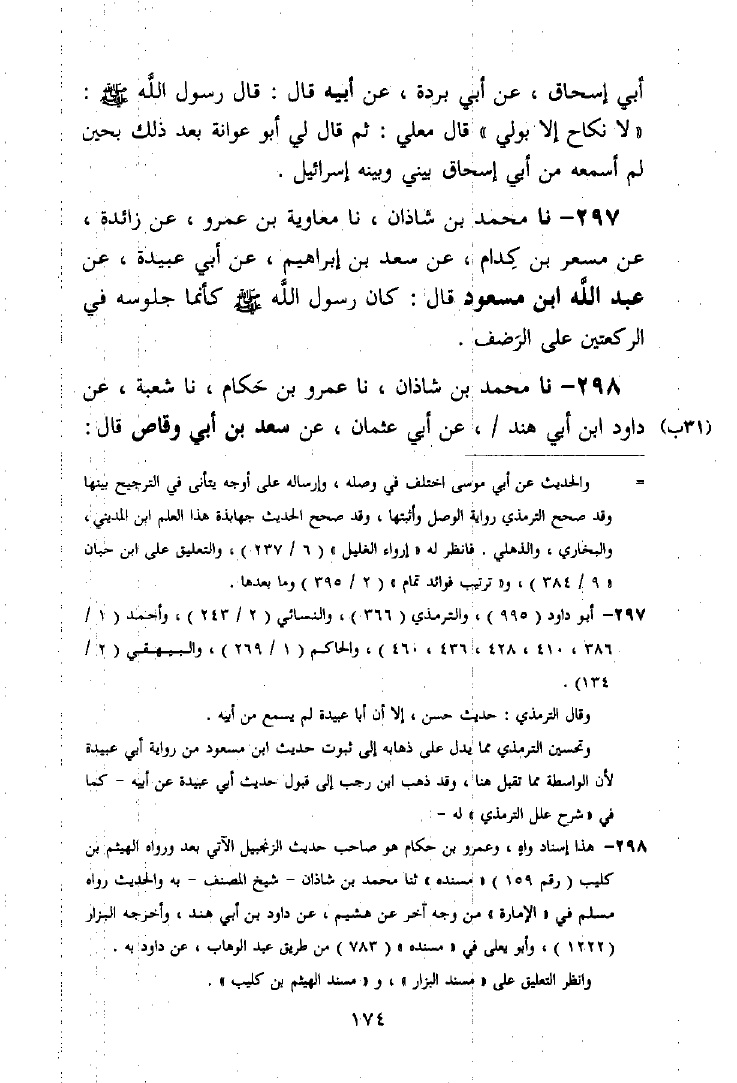 أبي إسحاق ، عن أبي بردة ، عن أبيه قال : قال رسول اللَّه ﷺ :
« لا نكاح إلا بولي » قال معلي : ثم قال لي أبو عوانة بعد ذلك بحين
لم أسمعه من أبي إسحاق بيني وبينه إسرائيل .
٢٩٧- نا محمد بن شاذان ، نا معاوية بن عمرو ، عن زائدة ،
عن مسعر بن كِدام ، عن سعد بن إبراهيم ، عن أبي عبيدة ، عن
عبد اللَّه ابن مسعود قال : كان رسول اللَّه ﷺ كأنما جلوسه في
الركعتين على الرَضف .
٢٩٨- نا محمد بن شاذان ، نا عمرو بن حَكام ، نا شعبة ، عن
(٣١ب) داود ابن أبي هند / ، عن أبي عثمان ، عن سعد بن أبي وقاص قال :
= والحديث عن أبي موسى اختلف في وصله ، وإرساله على أوجه يتأنى في الترجيح بينها
وقد صحح الترمذي رواية الوصل وأثبتها ، وقد صحح الحديث جهابذة هذا العلم ابن المديني ،
والبخاري ، والذهلي . فانظر له « إرواء الغليل » ( ٦ / ٢٣٧ ) ، والتعليق على ابن حبان
« ٩ / ٣٨٤ ) ، و« ترتيب فوائد تمام » ( ٢ / ٣٩٥ ) وما بعدها .
٢٩٧- أبو داود ( ٩٩٥ ) ، والترمذي ( ٣٦٦ ) ، والنسائي ( ٢ / ٢٤٣ ) ، وأحمد ( ١ /
٣٨٦ ، ٤١٠ ، ٤٢٨ ، ٤٣٦ ، ٤٦٠ ) ، والحاكم ( ١ / ٢٦٩ ) ، والبيهقي ( ٢ /
١٣٤) .
وقال الترمذي : حديث حسن ، إلا أن أبا عبيدة لم يسمع من أبيه .
وتحسين الترمذي مما يدل على ذهابه إلى ثبوت حديث ابن مسعود من رواية أبي عبيدة
لأن الواسطة مما تقبل هنا ، وقد ذهب ابن رجب إلى قبول حديث أبي عبيدة عن أبيه - كما
في « شرح علل الترمذي » له -
٢٩٨- هذا إسناد واهٍ ، وعمرو بن حكام هو صاحب حديث الزنجبيل الآتي بعد ورواه الهيثم بن
كليب ( رقم ١٥٩ ) « مسنده » ثنا محمد بن شاذان - شيخ المصنف - به والحديث رواه
مسلم في « الإمارة » من وجه آخر عن هشيم ، عن داود بن أبي هند ، وأخرجه البزار
( ١٢٢٢ ) ، وأبو يعلى في « مسنده » ( ٧٨٣ ) من طريق عبد الوهاب ، عن داود به .
وانظر التعليق على « مسند البزار » ، و « مسند الهيثم بن كليب » .
١٧٤